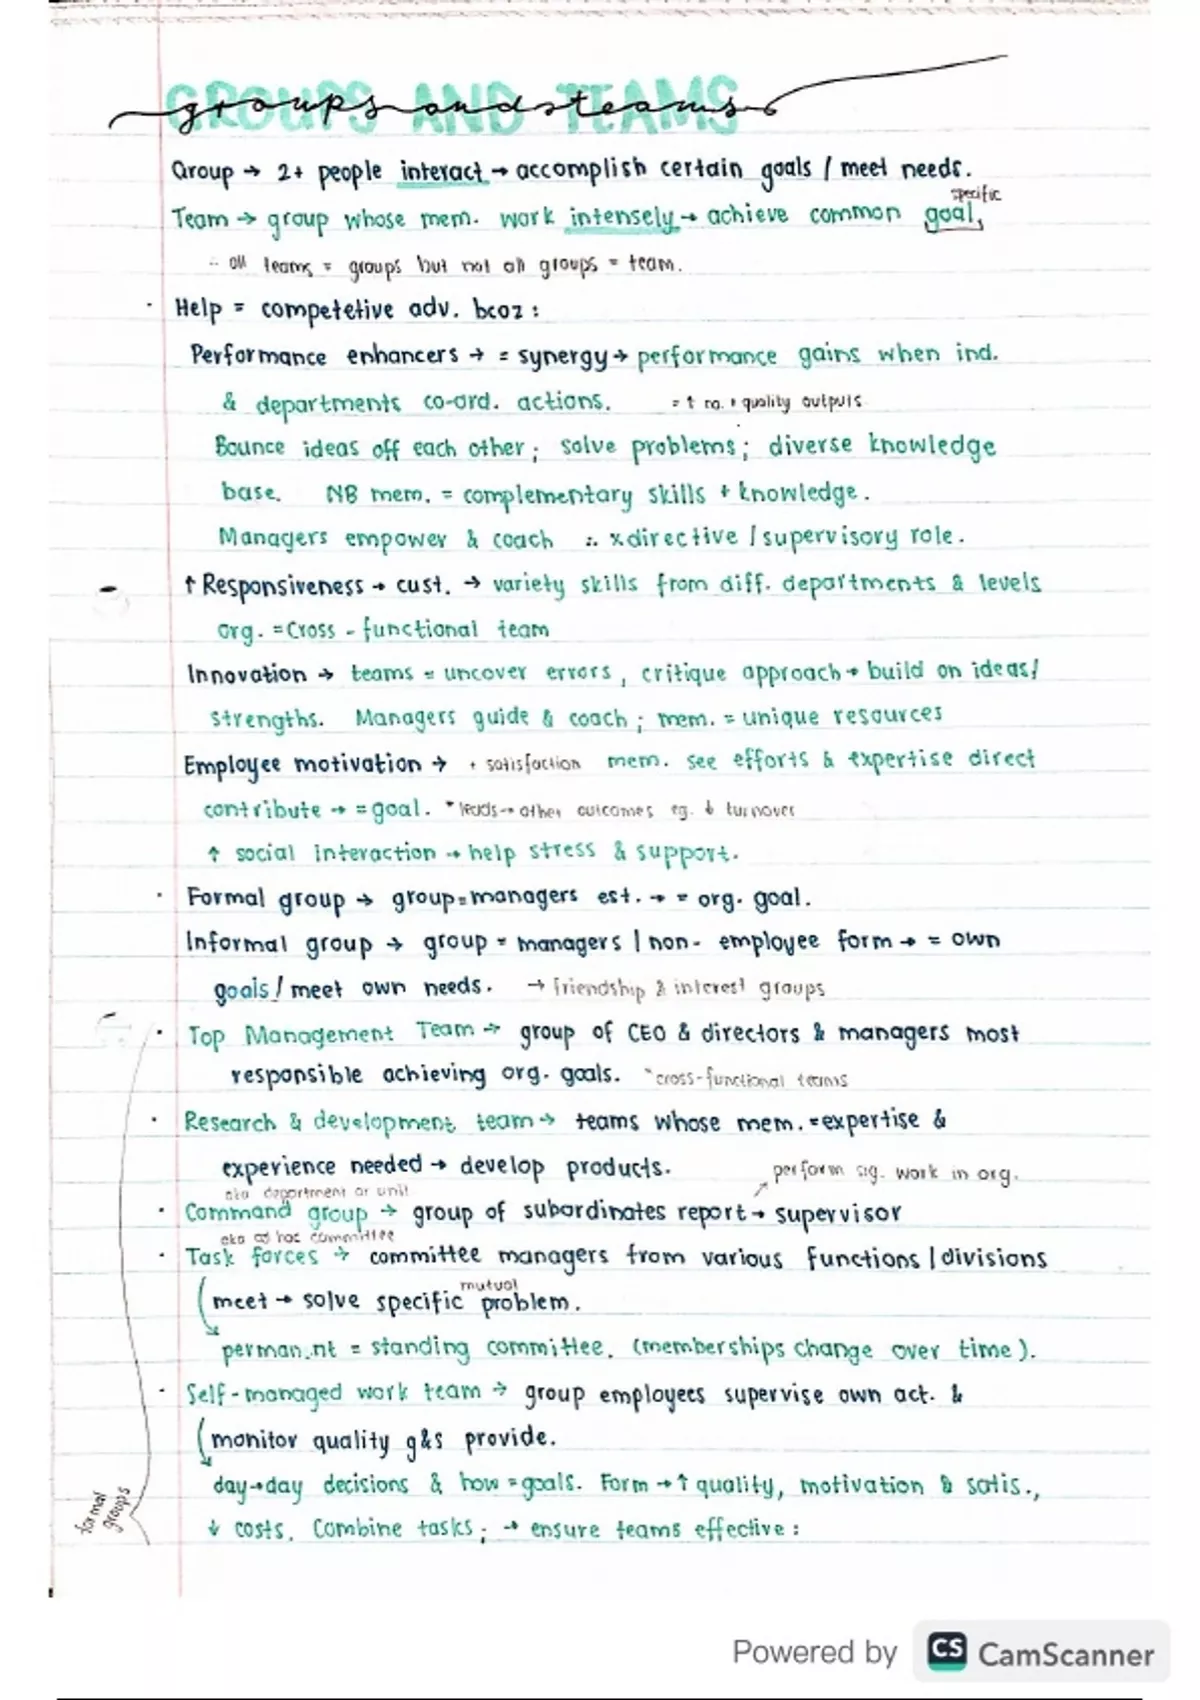 GROUPS AND TEAMS
groups and teams
Group → 2+ people interact → accomplish certain goals / meet needs.
specific
Team → group whose mem. work intensely → achieve common goal,
∴ all teams = groups but not all groups = team.
· Help = competetive adv. bcoz :
Performance enhancers → = synergy → performance gains when ind.
& departments co-ord. actions. = ↑ no. + quality outputs
Bounce ideas off each other ; solve problems ; diverse knowledge
base. NB mem. = complementary skills + knowledge.
Managers empower & coach ∴ x directive / supervisory role.
↑ Responsiveness → cust. → variety skills from diff. departments & levels
org. = Cross - functional team
Innovation → teams = uncover errors, critique approach → build on ideas/
strengths. Managers guide & coach ; mem. = unique resources
Employee motivation → + satisfaction mem. see efforts & expertise direct
contribute → = goal. * leads → other outcomes eg. ↓ turnover
↑ social interaction → help stress & support.
· Formal group → group = managers est. → = org. goal.
Informal group → group = managers / non- employee form → = own
goals / meet own needs. → friendship & interest groups
· Top Management Team → group of CEO & directors & managers most
responsible achieving org. goals. *cross-functional teams
· Research & development team → teams whose mem. = expertise &
experience needed → develop products.
perform sig. work in org.
aka department or unit
· Command group → group of subordinates report → supervisor
aka ad hoc committee
· Task forces → committee managers from various functions / divisions
mutual
meet → solve specific problem.
perman.nt = standing committee. (memberships change over time).
· Self-managed work team → group employees supervise own act. &
monitor quality g&s provide.
day → day decisions & how = goals. Form → ↑ quality, motivation & satis.,
↓ costs. Combine tasks ; → ensure teams effective :
formal
groups
Powered by CS CamScanner